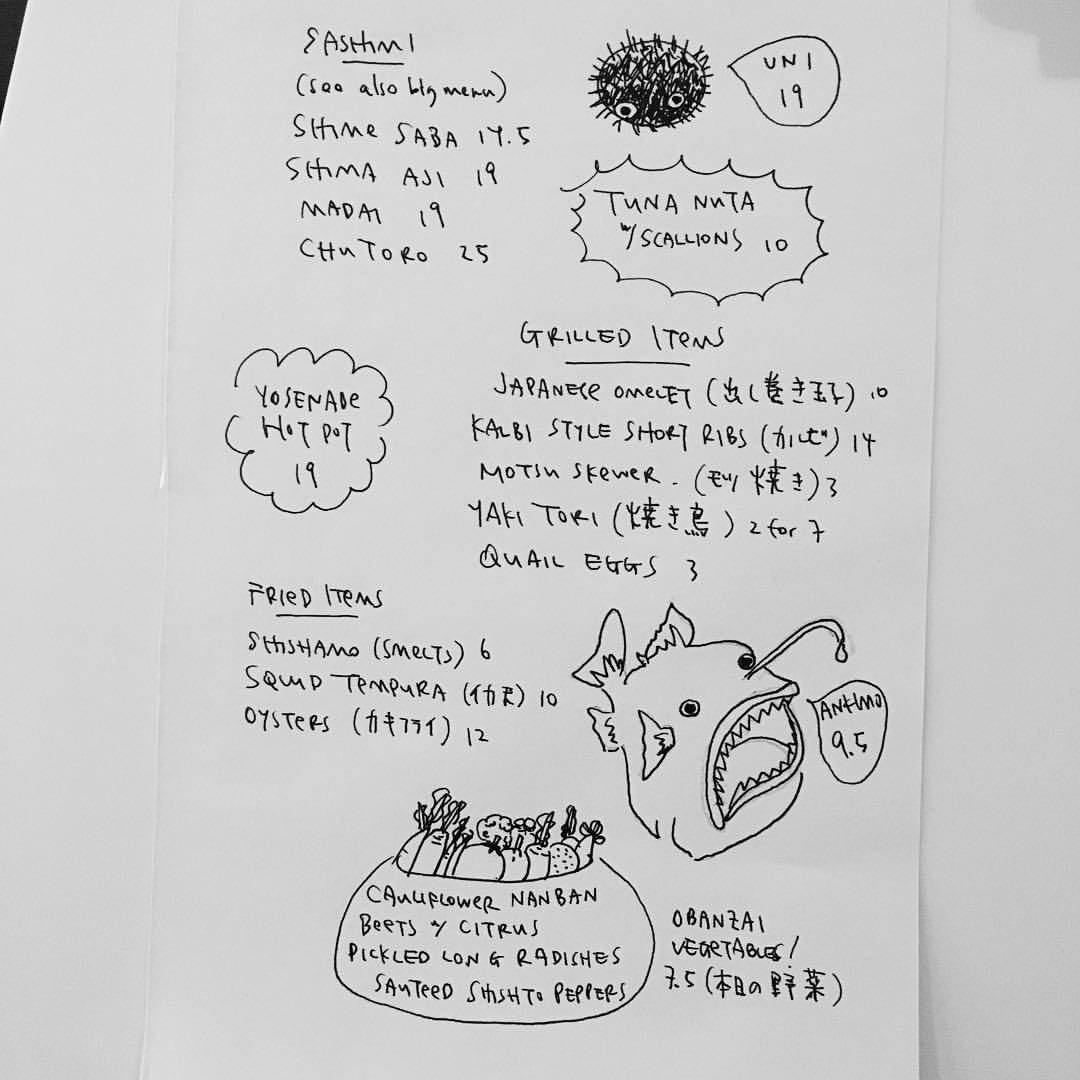 SASHIMI
(see also big menu)
SHIME SABA 17.5
SHIMA AJI 19
MADAI 19
CHUTORO 25
UNI
19
TUNA NUTA
w/ SCALLIONS 10
YOSENABE
HOT POT
19
GRILLED ITEMS
JAPANESE OMELET (出し巻き玉子) 10
KALBI STYLE SHORT RIBS (カルビ) 14
MOTSU SKEWER. (モツ焼き) 3
YAKI TORI (焼き鳥) 2 for 7
QUAIL EGGS 3
FRIED ITEMS
SHISHAMO (SMELTS) 6
SQUID TEMPURA (イカ天) 10
OYSTERS (カキフライ) 12
ANKIMO
9.5
CAULIFLOWER NANBAN
BEETS w/ CITRUS
PICKLED LONG RADISHES
SAUTEED SHISHITO PEPPERS
OBANZAI
VEGETABLES!
7.5 (本日の野菜)